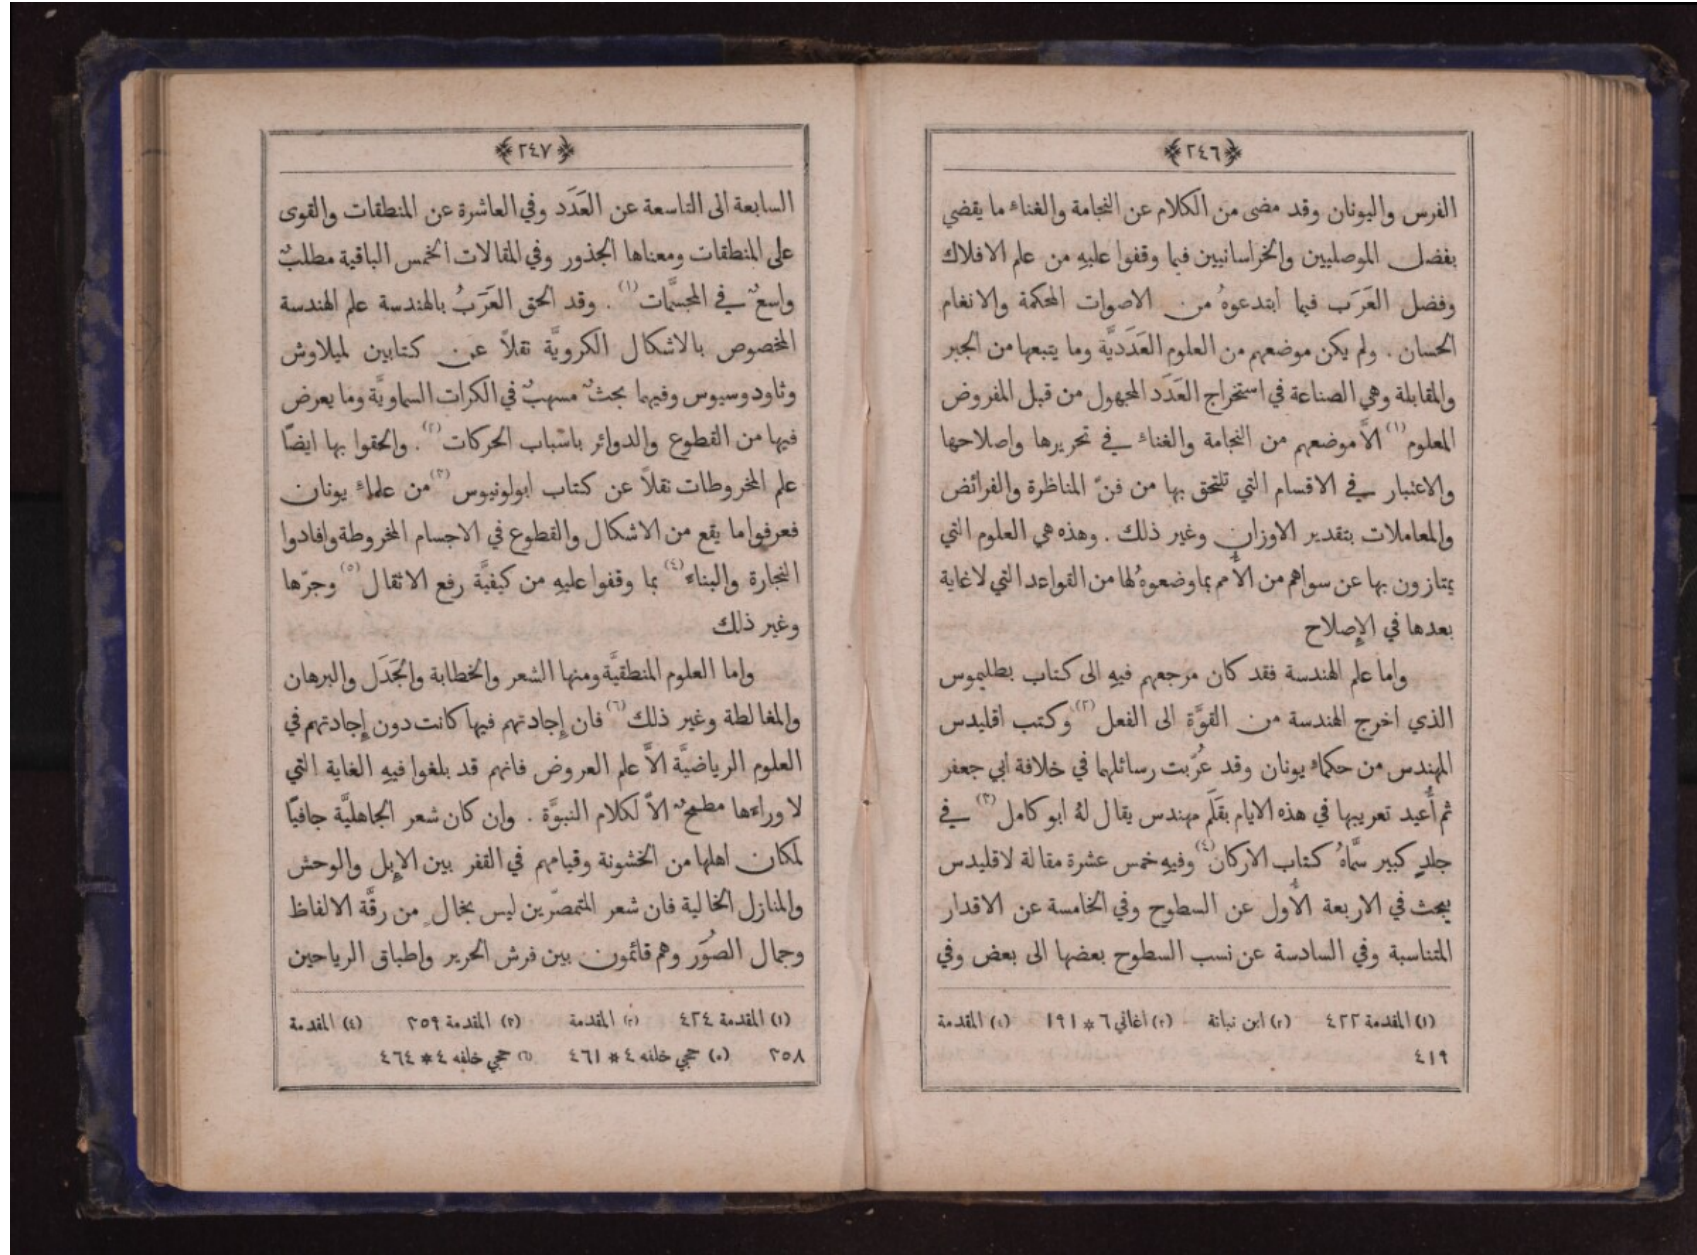 ﴿٢٤٦﴾
الفرس واليونان وقد مضى من الكلام عن النجامة والغناء ما يقضي
بفضل الموصليين والخراسانيين فيما وقفوا عليهِ من علم الافلاك
وفضل العَرَب فيما ابتدعوهُ من الاصوات المحكمة والانغام
الحسان . ولم يكن موضعهم من العلوم العَدَديَّة وما يتبعها من الجبر
والمقابلة وهي الصناعة في استخراج العَدَد المجهول من قبل المفروض
المعلوم (١) الاَّ موضعهم من النجامة والغناء في تحريرها واصلاحها
والاعتبار في الاقسام التي تلتحق بها من فنّ المناظرة والفرائض
والمعاملات بتقدير الاوزان وغير ذلك . وهذه هي العلوم التي
يمتازون بها عن سواهم من الأُمم بما وضعوهُ لها من القواعد التي لا غاية
بعدها في الإِصلاح
واما علم الهندسة فقد كان مرجعهم فيهِ الى كتاب بطليموس
الذي اخرج الهندسة من القوَّة الى الفعل (٢) وكتب اقليدس
المهندس من حكماء يونان وقد عُرّبت رسائلهما في خلافة ابي جعفر
ثم أُعيد تعريبها في هذه الايام بقَلَم مهندس يقال لهُ ابو كامل (٣) في
جلدٍ كبير سمَّاهُ كتاب الاركان (٤) وفيهِ خمس عشرة مقالة لاقليدس
يبحث في الاربعة الأُول عن السطوح وفي الخامسة عن الاقدار
المتناسبة وفي السادسة عن نسب السطوح بعضها الى بعض وفي
(١) المقدمة ٤٢٢ (٢) ابن نباتة (٣) اغاني ٦ * ١٩١ (٤) المقدمة
٤١٩
﴿٢٤٧﴾
السابعة الى التاسعة عن العَدَد وفي العاشرة عن المنطقات والقوى
على المنطقات ومعناها الجذور وفي المقالات الخمس الباقية مطلبٌ
واسعٌ في المجسَّمات (١) . وقد الحق العَرَبُ بالهندسة علم الهندسة
المخصوص بالاشكال الكرويَّة نقلاً عن كتابين لميلاوش
وثاودوسيوس وفيهما بحثٌ مسهبٌ في الكرات السماويَّة وما يعرض
فيها من القطوع والدوائر باسباب الحركات (٢) . والحقوا بها ايضاً
علم المخروطات نقلاً عن كتاب ابولونيوس (٣) من علماء يونان
فعرفوا ما يقع من الاشكال والقطوع في الاجسام المخروطة وافادوا
النجارة والبناء (٤) بما وقفوا عليهِ من كيفيَّة رفع الاثقال (٥) وجرّها
وغير ذلك
واما العلوم المنطقيَّة ومنها الشعر والخطابة والجَدَل والبرهان
والمغالطة وغير ذلك (٦) فان إِجادتهم فيها كانت دون إِجادتهم في
العلوم الرياضيَّة الاَّ علم العروض فانهم قد بلغوا فيهِ الغاية التي
لا وراءها مطمحٌ الاَّ لكلام النبوَّة . وان كان شعر الجاهليَّة جافياً
لمكان اهلها من الخشونة وقيامهم في القفر بين الإِبل والوحش
والمنازل الخالية فان شعر المتمصّرين ليس بخالٍ من رقَّة الالفاظ
وجمال الصُوَر وهم قائمون بين فرش الحرير واطباق الرياحين
(١) المقدمة ٤٢٤ (٢) المقدمة (٣) المقدمة ٣٥٩ (٤) المقدمة
٣٥٨ (٥) حجي خلفه ٤ * ٤٦١ (٦) حجي خلفه ٤ * ٤٦٤